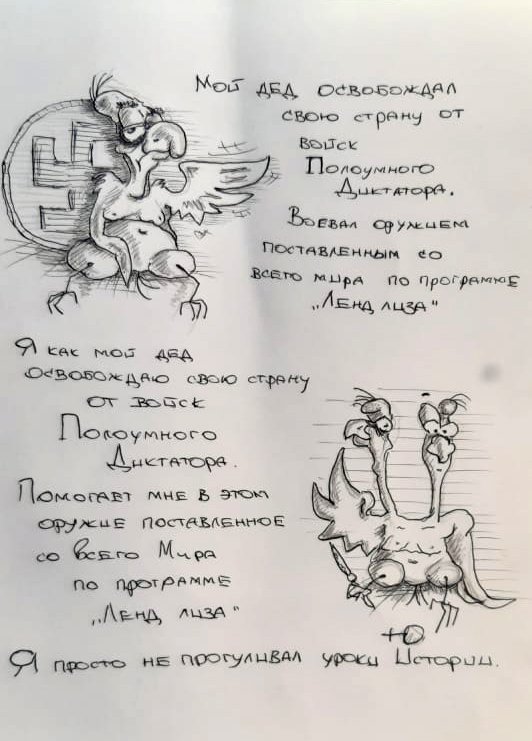 Мой дед освобождал
свою страну от
войск
Полоумного
Диктатора.
Воевал оружием
поставленным со
всего мира по программе
„Ленд лиза"
Я как мой дед
освобождаю свою страну
от войск
Полоумного
Диктатора.
Помогает мне в этом
оружие поставленное
со всего Мира
по программе
„Ленд лиза"
Я просто не прогуливал уроки Истории.